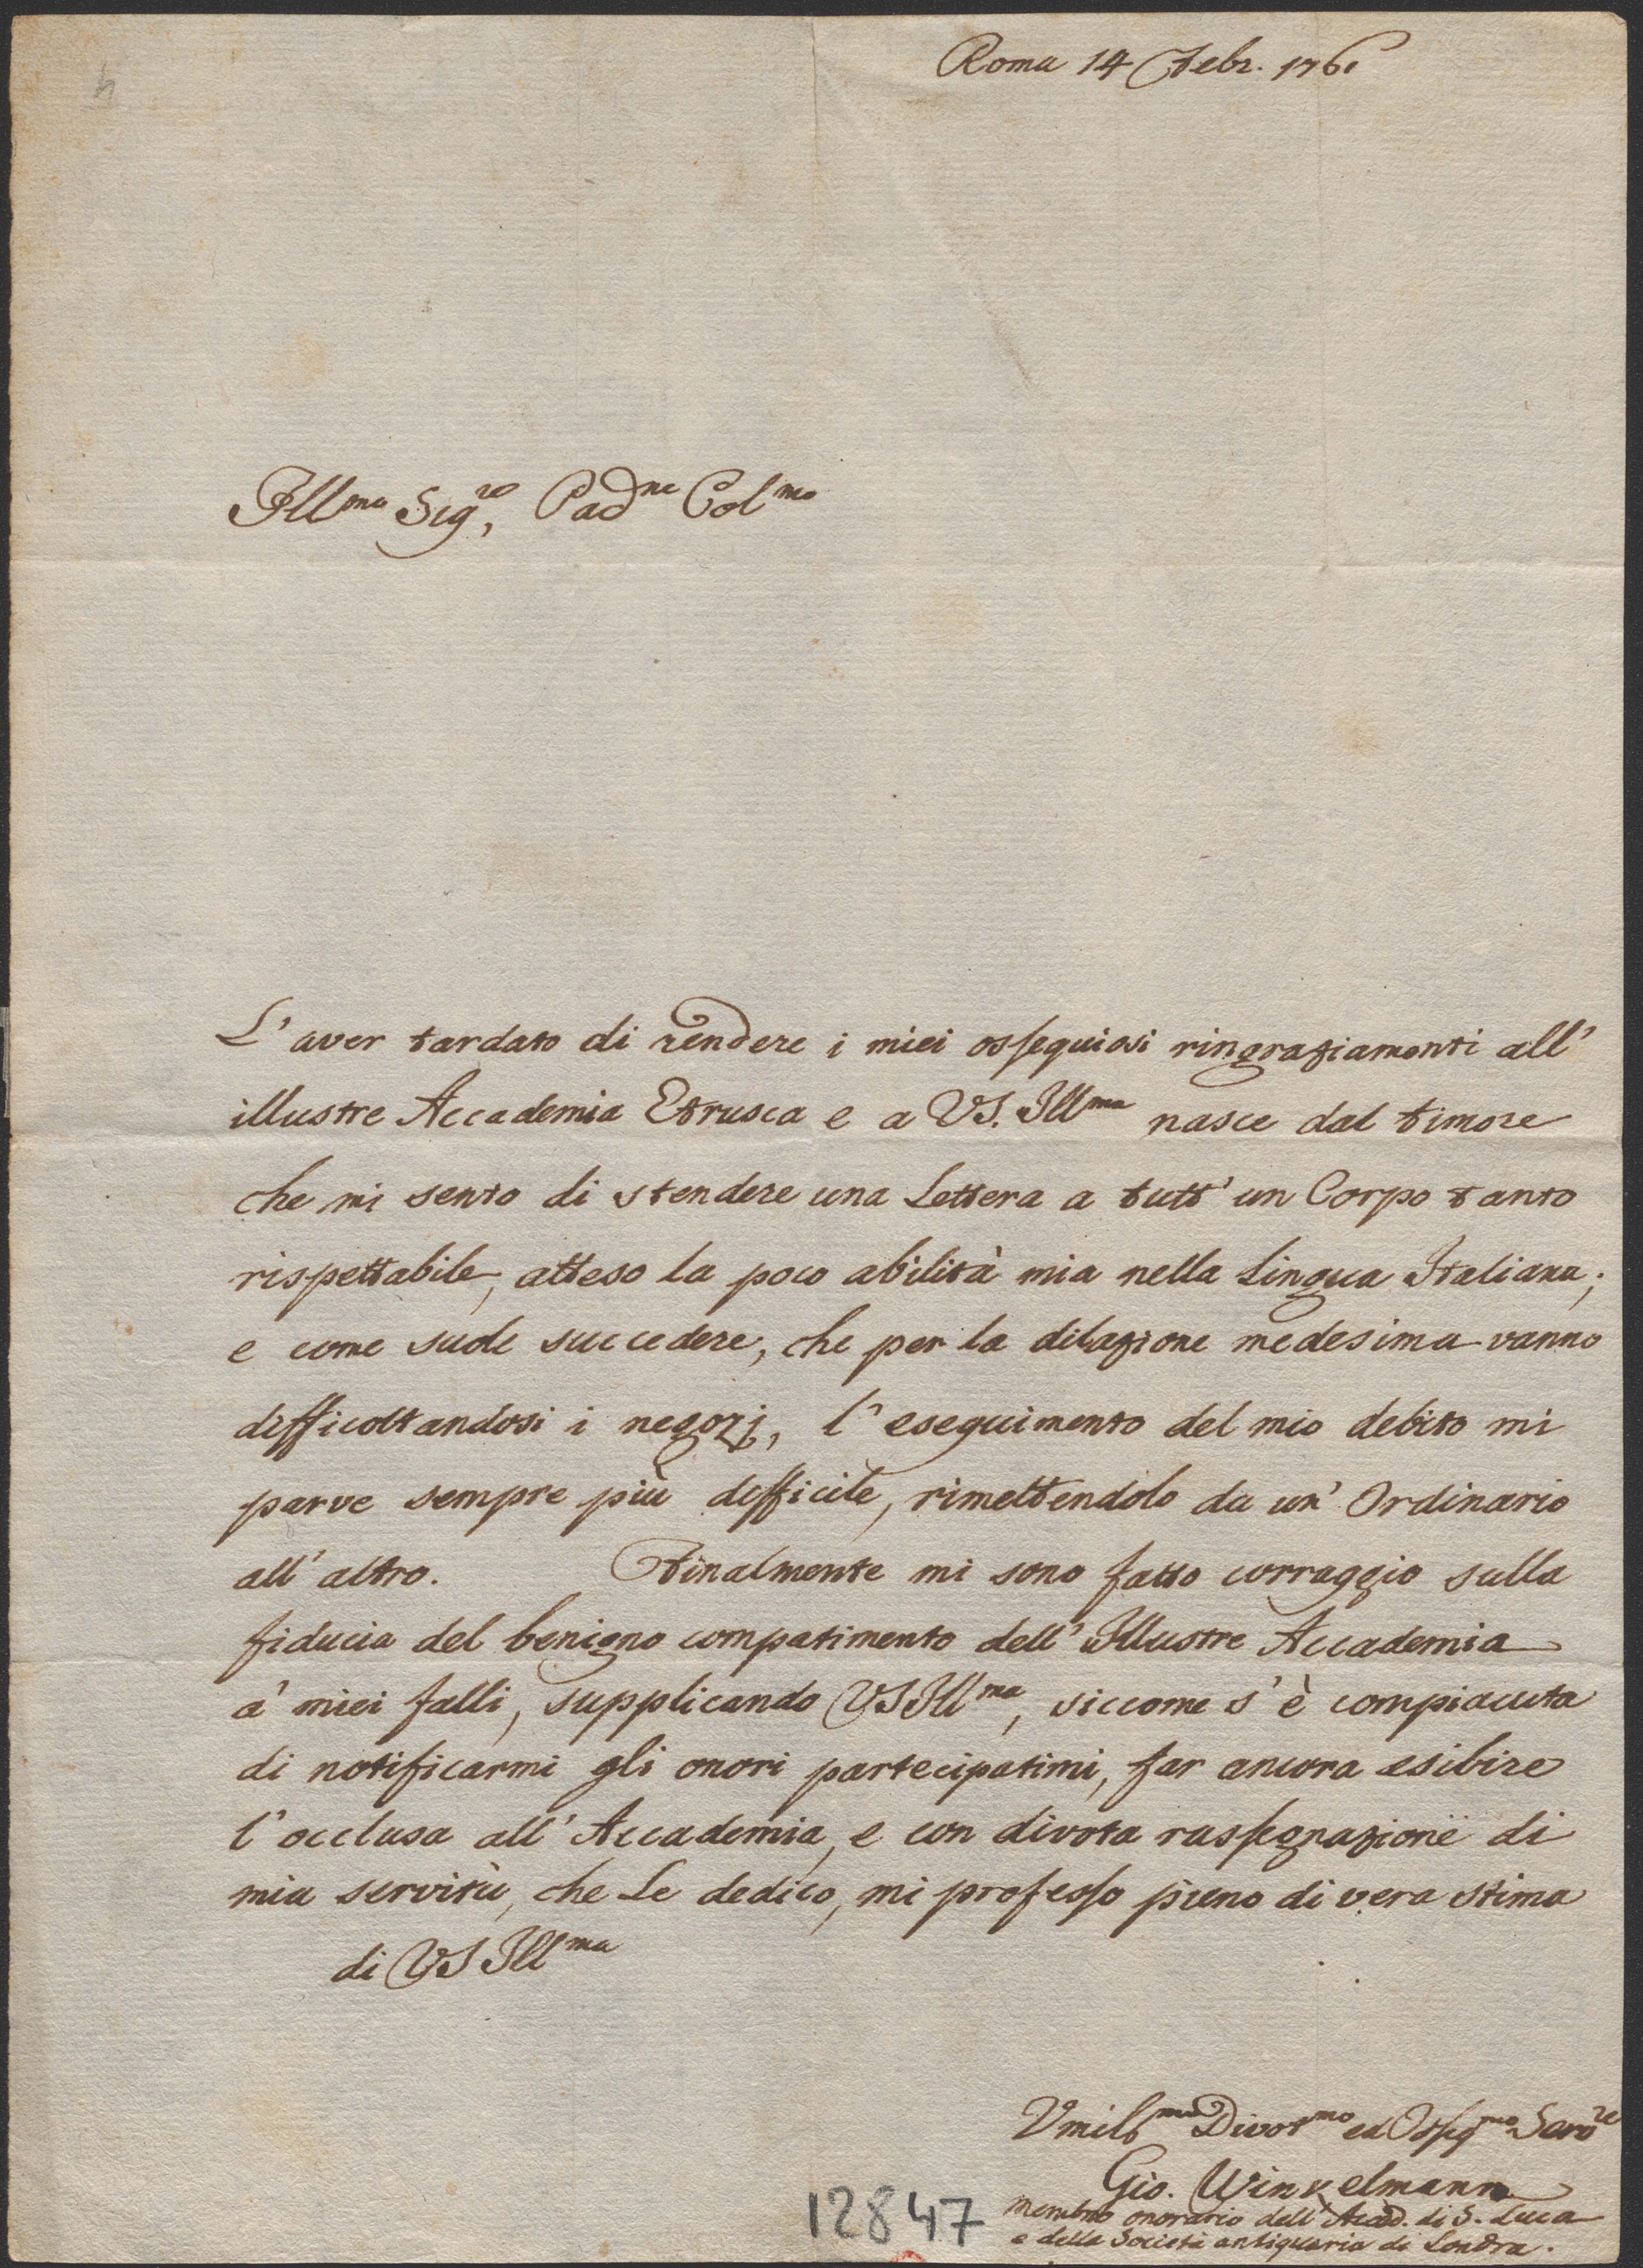 Roma 14 Febr. 1761
Illmo Sigre, Padne Colmo
L' aver tardato di rendere i miei ossequiosi ringraziamenti all'
illustre Accademia Etrusca e a VS. Illma nasce dal timore
che mi sento di stendere una Lettera a tutt' un Corpo tanto
rispettabile, atteso la poco abilità mia nella Lingua Italiana;
e come suole succedere, che per la dilazione medesima vanno
difficoltandosi i negozj, l' eseguimento del mio debito mi
parve sempre più difficile, rimettendolo da un' Ordinario
all' altro. Finalmente mi sono fatto corraggio sulla
fiducia del benigno compatimento dell' Illustre Accademia
a' miei falli, supplicando VS Illma, siccome s' è compiacuta
di notificarmi gli onori partecipatimi, far ancora esibire
l' occlusa all' Accademia, e con divota rassegnazione di
mia servitù, che Le dedico, mi professo pieno di vera stima
di VS Illma
Vmilmo Divotmo ed Ossqmo Servre
Gio. Winkelmann
membro onorario dell' Accad. di S. Luca
e della Società antiquaria di Londra.
12847